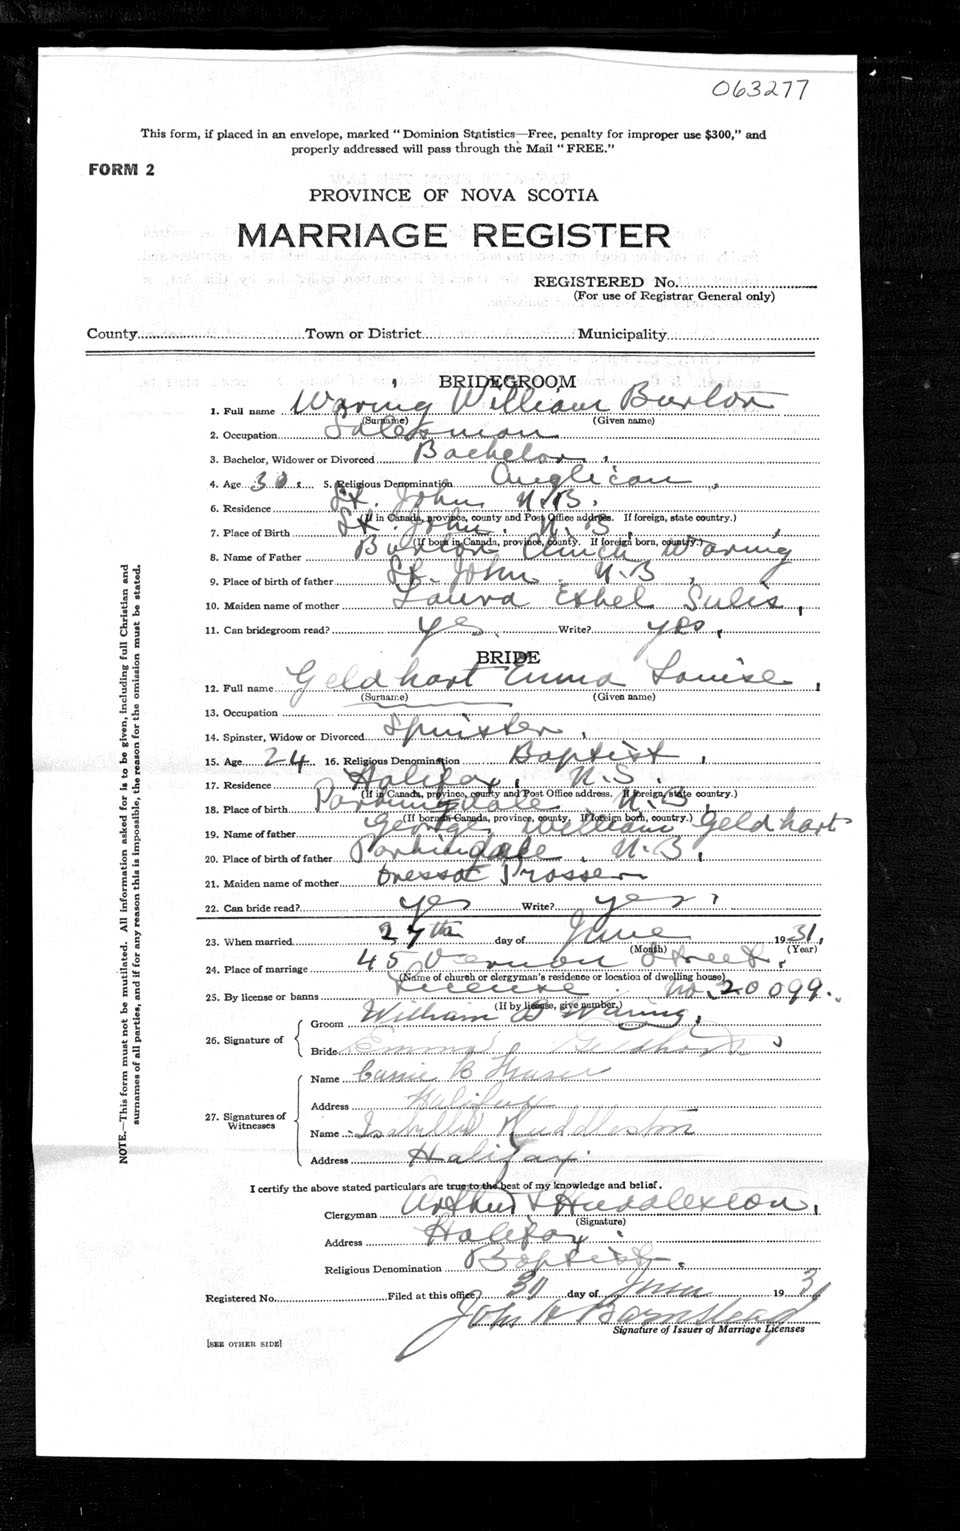 063277
This form, if placed in an envelope, marked "Dominion Statistics—Free, penalty for improper use $300," and
properly addressed will pass through the Mail "FREE."
FORM 2
PROVINCE OF NOVA SCOTIA
MARRIAGE REGISTER
REGISTERED No.
(For use of Registrar General only)
County Town or District Municipality
BRIDEGROOM
1. Full name Waring William Burton
(Surname) (Given name)
2. Occupation Salesman
3. Bachelor, Widower or Divorced Bachelor
4. Age 30. 5. Religious Denomination Anglican
6. Residence St. John N.B.
(If in Canada, province, county and Post Office address. If foreign, state country.)
7. Place of Birth St. John. N.B.
(If born in Canada, province, county. If foreign born, country.)
8. Name of Father Burton Clinch Waring
9. Place of birth of father St. John. N.B
10. Maiden name of mother Laura Ethel Sulis,
11. Can bridegroom read? yes. Write? yes,
BRIDE
12. Full name Geldhart Emma Louise,
(Surname) (Given name)
13. Occupation
14. Spinster, Widow or Divorced Spinster,
15. Age 24 16. Religious Denomination Baptist,
17. Residence Halifax, N.S.
(If in Canada, province, county and Post Office address. If foreign, state country.)
18. Place of birth Parkindale N.B,
(If born in Canada, province, county. If foreign born, country.)
19. Name of father George William Geldhart
20. Place of birth of father Parkindale, N.B,
21. Maiden name of mother Prosser
22. Can bride read? yes Write? yes,
23. When married 27th day of June 1931,
(Month) (Year)
24. Place of marriage 45 Vernon Street,
(Name of church or clergyman's residence or location of dwelling house)
25. By license or banns License. No. 20099.
(If by license, give number.)
26. Signature of
Groom William B Waring,
Bride Emma L Geldhart
27. Signatures of
Witnesses
Name Carrie B Fraser
Address Halifax
Name Isabelle Huddleston
Address Halifax.
I certify the above stated particulars are true to the best of my knowledge and belief.
Clergyman Arthur Huddleston,
(Signature)
Address Halifax
Religious Denomination Baptist.
Registered No. Filed at this office 30 day of June 1931
John H Barnstead
Signature of Issuer of Marriage Licenses
[SEE OTHER SIDE]
NOTE.—This form must not be mutilated. All information asked for is to be given, including full Christian and
surnames of all parties, and if for any reason this is impossible, the reason for the omission must be stated.